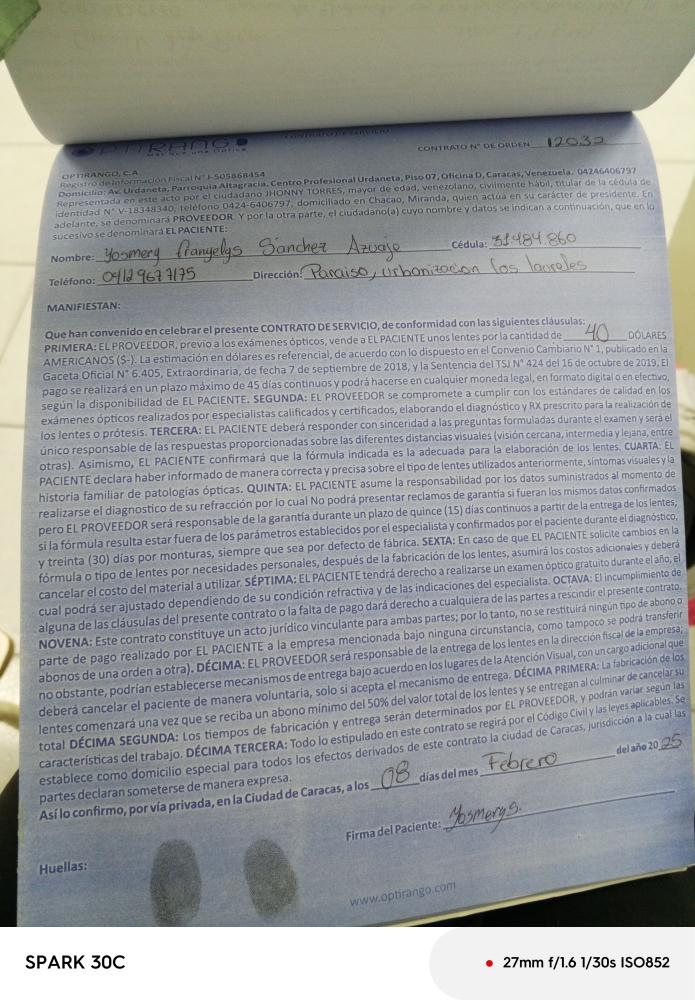 OPTIRANGO
CONTRATO DE SERVICIO
CONTRATO N° DE ORDEN 12032
OPTIRANGO, C.A.
Registro de Información Fiscal N° J-505868454
Domicilio: Av. Urdaneta, Parroquia Altagracia, Centro Profesional Urdaneta, Piso 07, Oficina D, Caracas, Venezuela. 04246406797
Representada en este acto por el ciudadano JHONNY TORRES, mayor de edad, venezolano, civilmente hábil, titular de la cédula de
identidad N° V-18348340, teléfono 0424-6406797, domiciliado en Chacao, Miranda, quien actúa en su carácter de presidente. En
adelante, se denominará PROVEEDOR. Y por la otra parte, el ciudadano(a) cuyo nombre y datos se indican a continuación, que en lo
sucesivo se denominará EL PACIENTE:
Nombre: Yosmery franyelys Sánchez Azuaje Cédula: 31.484.860
Teléfono: 0412 967 7175 Dirección: Paraiso, urbanizacion los laureles
MANIFIESTAN:
Que han convenido en celebrar el presente CONTRATO DE SERVICIO, de conformidad con las siguientes cláusulas:
PRIMERA: EL PROVEEDOR, previo a los exámenes ópticos, vende a EL PACIENTE unos lentes por la cantidad de 40 DÓLARES
AMERICANOS ($-). La estimación en dólares es referencial, de acuerdo con lo dispuesto en el Convenio Cambiario N° 1, publicado en la
Gaceta Oficial N° 6.405, Extraordinaria, de fecha 7 de septiembre de 2018, y la Sentencia del TSJ N° 424 del 16 de octubre de 2019. El
pago se realizará en un plazo máximo de 45 días continuos y podrá hacerse en cualquier moneda legal, en formato digital o en efectivo,
según la disponibilidad de EL PACIENTE. SEGUNDA: EL PROVEEDOR se compromete a cumplir con los estándares de calidad en los
exámenes ópticos realizados por especialistas calificados y certificados, elaborando el diagnóstico y RX prescrito para la realización de
los lentes o prótesis. TERCERA: EL PACIENTE deberá responder con sinceridad a las preguntas formuladas durante el examen y será el
único responsable de las respuestas proporcionadas sobre las diferentes distancias visuales (visión cercana, intermedia y lejana, entre
otras). Asimismo, EL PACIENTE confirmará que la fórmula indicada es la adecuada para la elaboración de los lentes. CUARTA. EL
PACIENTE declara haber informado de manera correcta y precisa sobre el tipo de lentes utilizados anteriormente, síntomas visuales y la
historia familiar de patologías ópticas. QUINTA: EL PACIENTE asume la responsabilidad por los datos suministrados al momento de
realizarse el diagnostico de su refracción por lo cual No podrá presentar reclamos de garantía si fueran los mismos datos confirmados
pero EL PROVEEDOR será responsable de la garantía durante un plazo de quince (15) días continuos a partir de la entrega de los lentes,
si la fórmula resulta estar fuera de los parámetros establecidos por el especialista y confirmados por el paciente durante el diagnóstico,
y treinta (30) días por monturas, siempre que sea por defecto de fábrica. SEXTA: En caso de que EL PACIENTE solicite cambios en la
fórmula o tipo de lentes por necesidades personales, después de la fabricación de los lentes, asumirá los costos adicionales y deberá
cancelar el costo del material a utilizar. SÉPTIMA: EL PACIENTE tendrá derecho a realizarse un examen óptico gratuito durante el año, el
cual podrá ser ajustado dependiendo de su condición refractiva y de las indicaciones del especialista. OCTAVA: El incumplimiento de
alguna de las cláusulas del presente contrato o la falta de pago dará derecho a cualquiera de las partes a rescindir el presente contrato.
NOVENA: Este contrato constituye un acto jurídico vinculante para ambas partes; por lo tanto, no se restituirá ningún tipo de abono o
parte de pago realizado por EL PACIENTE a la empresa mencionada bajo ninguna circunstancia, como tampoco se podrá transferir
abonos de una orden a otra). DÉCIMA: EL PROVEEDOR será responsable de la entrega de los lentes en la dirección fiscal de la empresa;
no obstante, podrían establecerse mecanismos de entrega bajo acuerdo en los lugares de la Atención Visual, con un cargo adicional que
deberá cancelar el paciente de manera voluntaria, solo si acepta el mecanismo de entrega. DÉCIMA PRIMERA: La fabricación de los
lentes comenzará una vez que se reciba un abono mínimo del 50% del valor total de los lentes y se entregan al culminar de cancelar su
total DÉCIMA SEGUNDA: Los tiempos de fabricación y entrega serán determinados por EL PROVEEDOR, y podrán variar según las
características del trabajo. DÉCIMA TERCERA: Todo lo estipulado en este contrato se regirá por el Código Civil y las leyes aplicables. Se
establece como domicilio especial para todos los efectos derivados de este contrato la ciudad de Caracas, jurisdicción a la cual las
partes declaran someterse de manera expresa.
Así lo confirmo, por vía privada, en la Ciudad de Caracas, a los 08 días del mes Febrero del año 2025
Firma del Paciente: Yosmery S.
Huellas:
www.optirango.com
SPARK 30C
27mm f/1.6 1/30s ISO852